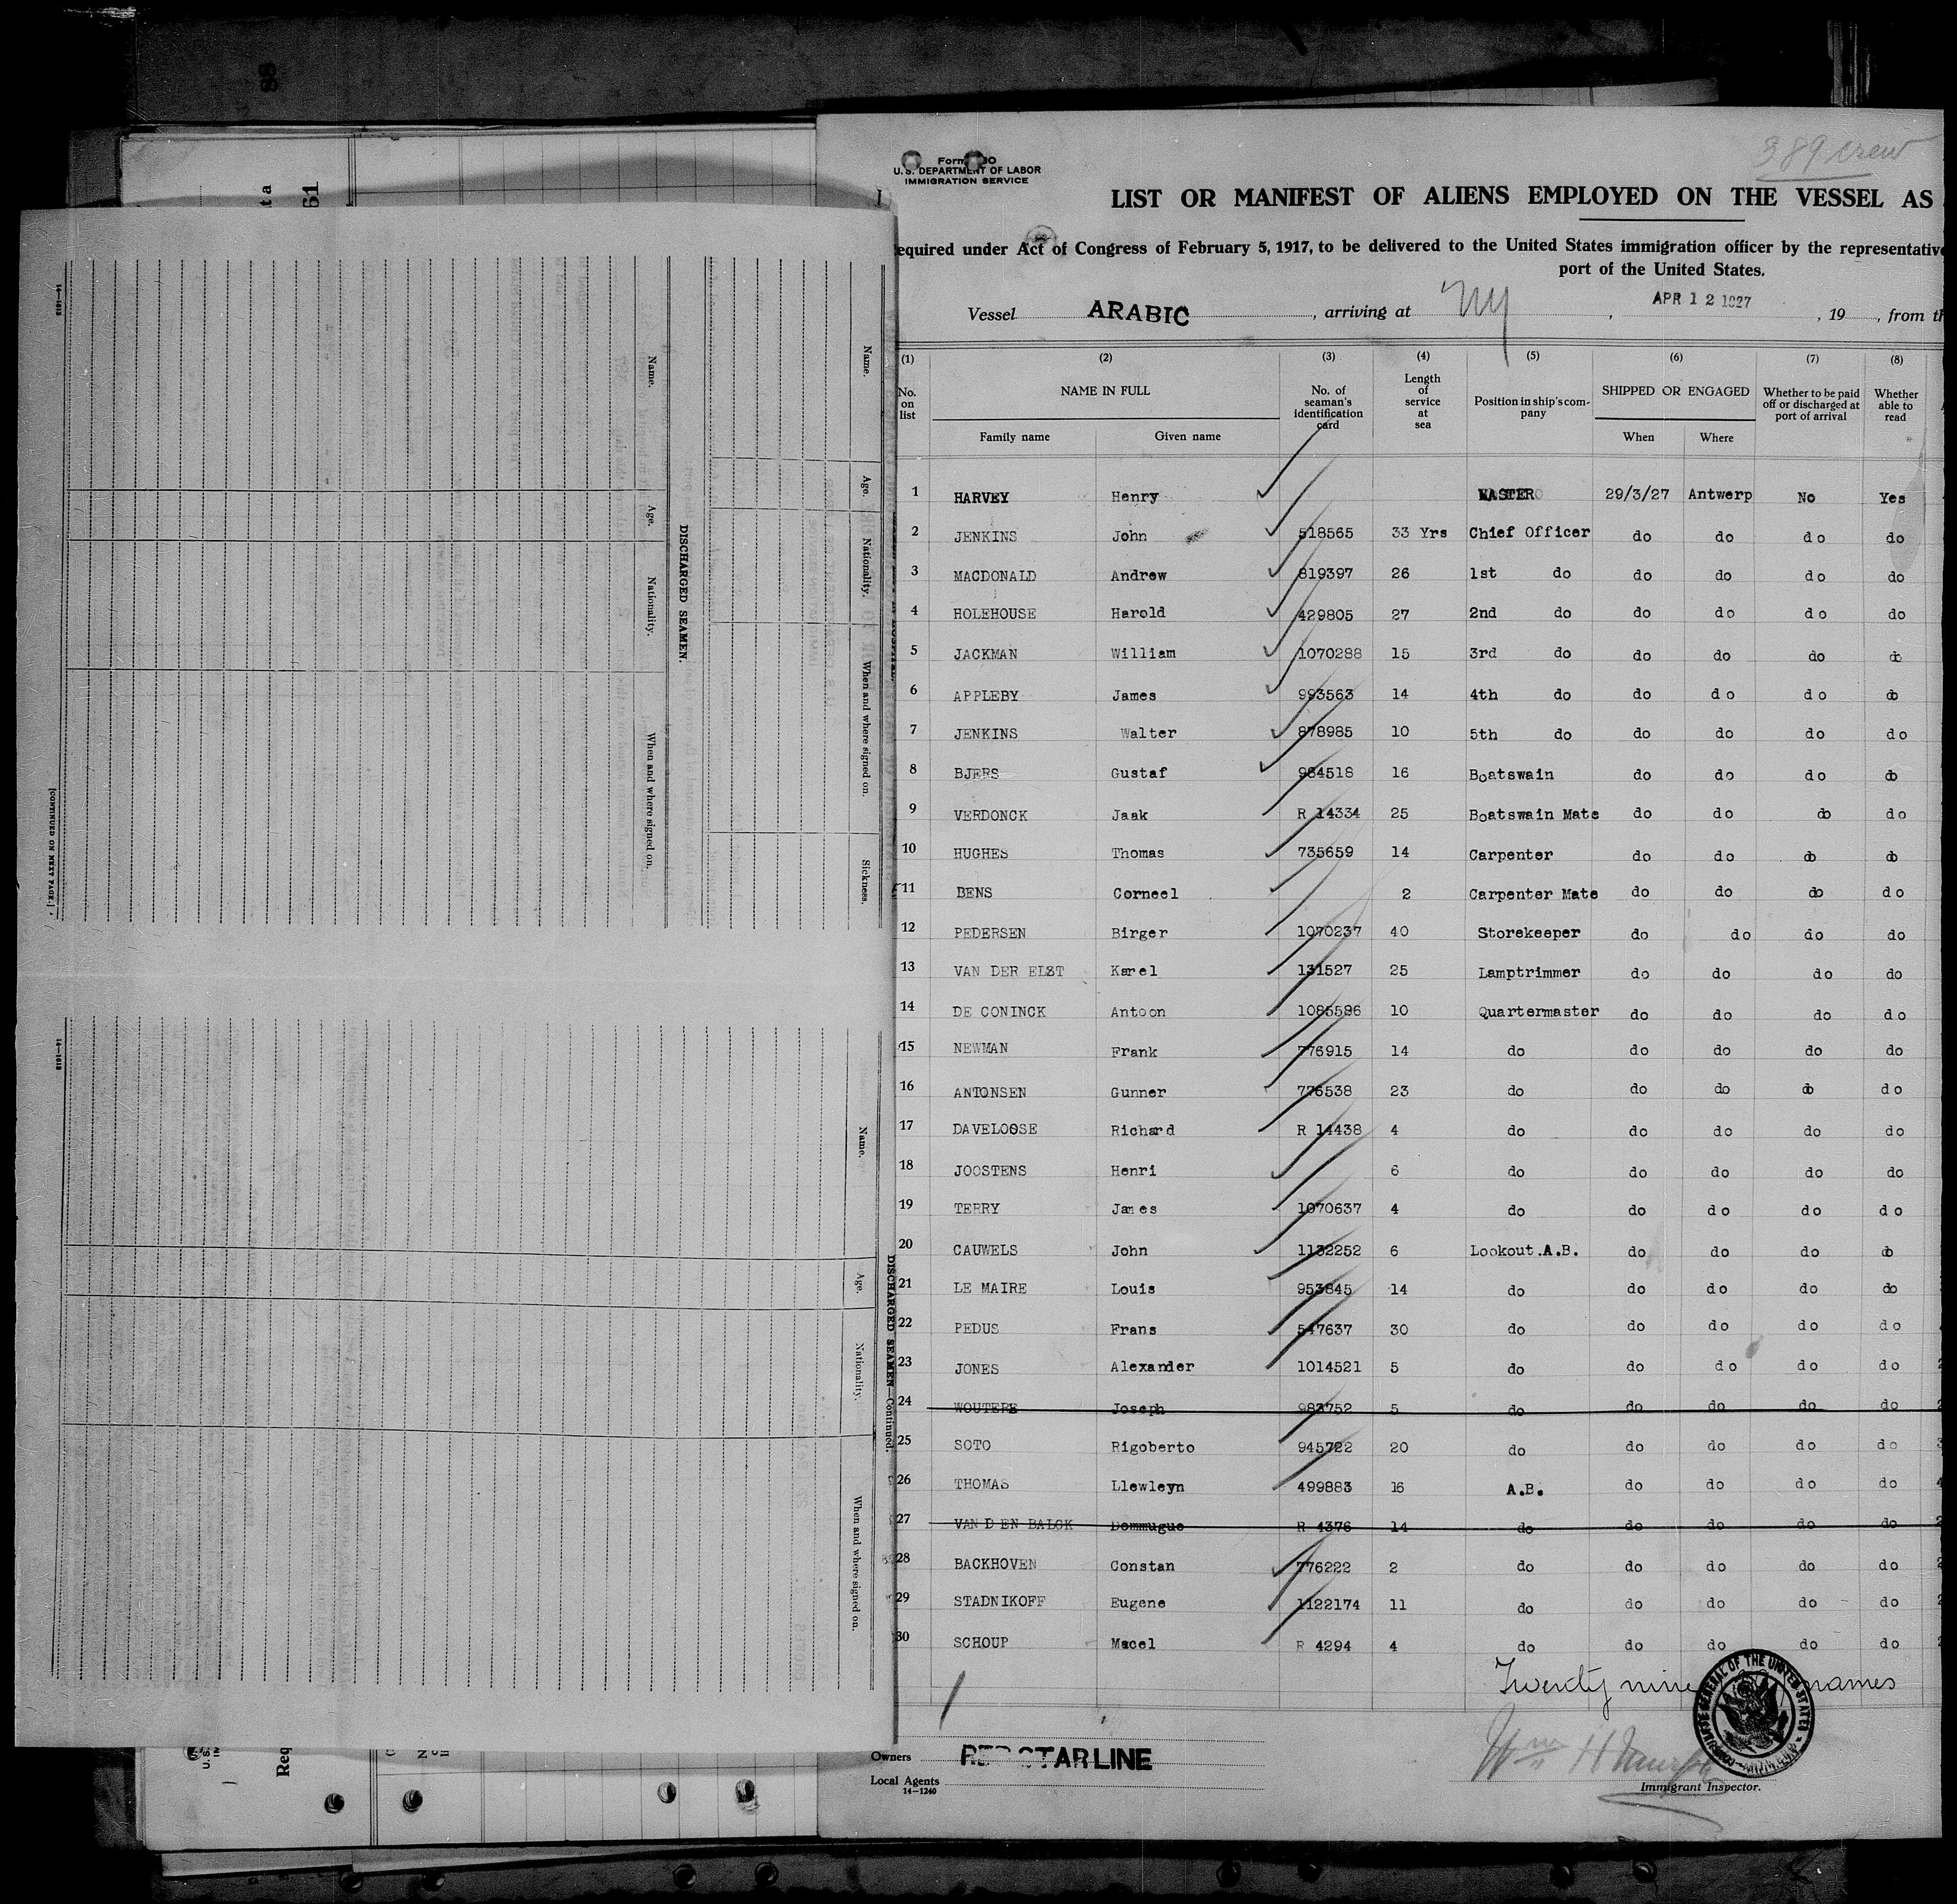 88
ta
61
14—1613
[CONTINUED ON NEXT PAGE.]
Name.
Age.
Nationality.
When and where signed on.
DISCHARGED SEAMEN.
Name.
Age.
Nationality.
When and where signed on.
Sickness.
14—1613
Name.
Age.
Nationality.
When and where signed on.
DISCHARGED SEAMEN—Continued.
U. S.
Req
389 crew
U. S. DEPARTMENT OF LABOR
IMMIGRATION SERVICE
LIST OR MANIFEST OF ALIENS EMPLOYED ON THE VESSEL AS
equired under Act of Congress of February 5, 1917, to be delivered to the United States immigration officer by the representative
port of the United States.
Vessel ARABIC , arriving at NY , APR 12 1927 , 19 , from th
(1) (2) (3) (4) (5) (6) (7) (8)
No. on list NAME IN FULL No. of seaman's identification card Length of service at sea Position in ship's company SHIPPED OR ENGAGED Whether to be paid off or discharged at port of arrival Whether able to read
Family name Given name When Where
1 HARVEY Henry MASTER 29/3/27 Antwerp No Yes
2 JENKINS John 518565 33 Yrs Chief Officer do do do do
3 MACDONALD Andrew 819397 26 1st do do do do do
4 HOLEHOUSE Harold 429805 27 2nd do do do do do
5 JACKMAN William 1070288 15 3rd do do do do do
6 APPLEBY James 993563 14 4th do do do do do
7 JENKINS Walter 878985 10 5th do do do do do
8 BJERS Gustaf 984518 16 Boatswain do do do do
9 VERDONCK Jaak R 14334 25 Boatswain Mate do do do do
10 HUGHES Thomas 735659 14 Carpenter do do do do
11 BENS Corneel 2 Carpenter Mate do do do do
12 PEDERSEN Birger 1070237 40 Storekeeper do do do do
13 VAN DER ELST Karel 131527 25 Lamptrimmer do do do do
14 DE CONINCK Antoon 1085586 10 Quartermaster do do do do
15 NEWMAN Frank 776915 14 do do do do do
16 ANTONSEN Gunner 776538 23 do do do do do
17 DAVELOOSE Richard R 14438 4 do do do do do
18 JOOSTENS Henri 6 do do do do do
19 TERRY James 1070637 4 do do do do do
20 CAUWELS John 1132252 6 Lookout.A.B. do do do do
21 LE MAIRE Louis 953845 14 do do do do do
22 PEDUS Frans 547637 30 do do do do do
23 JONES Alexander 1014521 5 do do do do do
24 WOUTERE Joseph 983752 5 do do do do do
25 SOTO Rigoberto 945722 20 do do do do do
26 THOMAS Llewleyn 499883 16 A.B. do do do do
27 VAN DEN BALCK Dommugue R 4376 14 do do do do do
28 BACKHOVEN Constan 776222 2 do do do do do
29 STADNIKOFF Eugene 1122174 11 do do do do do
30 SCHOUP Macel R 4294 4 do do do do do
Twenty nine names
Owners RED STAR LINE
Local Agents
14—1240
Immigrant Inspector.